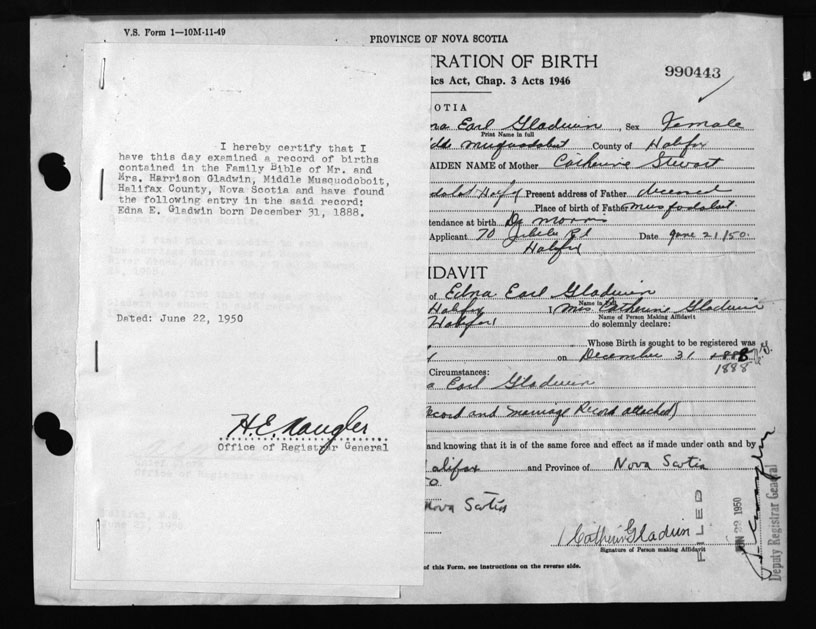 V.S. Form 1—10M-11-49
PROVINCE OF NOVA SCOTIA
TRATION OF BIRTH
990443
ics Act, Chap. 3 Acts 1946
OTIA
na Earl Gladwin, Sex Female
Print Name in full
Musquodoboit County of Halifax
AIDEN NAME of Mother Catherine Stewart
Present address of Father deceased
Place of birth of Father Musquodoboit
tendance at birth Dr Morris
Applicant 70 Jubilee Rd Date June 21/50.
Halifax
I hereby certify that I
have this day examined a record of births
contained in the Family Bible of Mr. and
Mrs. Harrison Gladwin, Middle Musquodoboit,
Halifax County, Nova Scotia and have found
the following entry in the said record:
Edna E. Gladwin born December 31, 1888.
Dated: June 22, 1950
H.E. Naugler
Office of Registrar General
FIDAVIT
of Edna Earl Gladwin
Name in full
Halifax I Mrs Catherine Gladwin
Name of Person Making Affidavit
Halifax do solemnly declare:
Whose Birth is sought to be registered was
on December 31 1888
1888
Circumstances:
a Earl Gladwin
ecord and Marriage Record attached)
and knowing that it is of the same force and effect as if made under oath and by
alifax and Province of Nova Scotia
Nova Scotia
Catherine Gladwin
Signature of Person making Affidavit
of this Form, see instructions on the reverse side.
FILED
JUN 22 1950
Deputy Registrar General